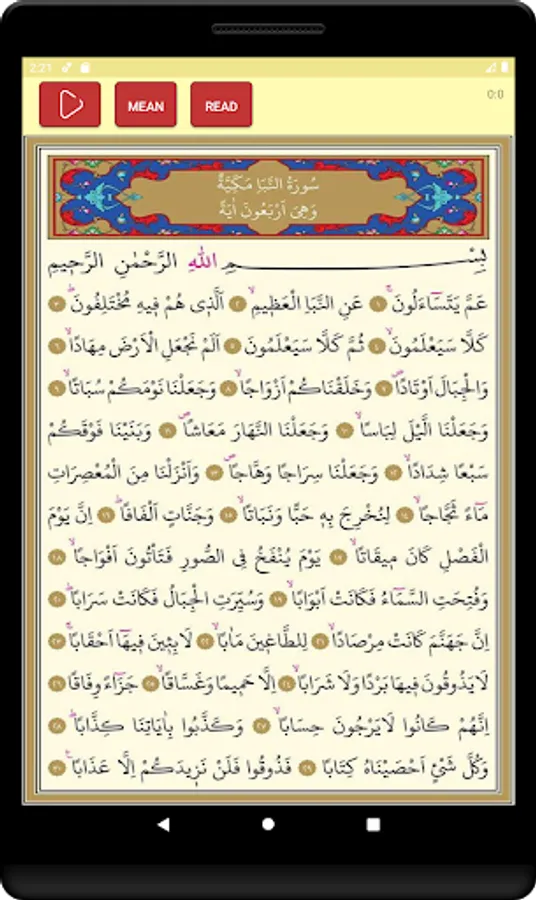 2:21
0:0
MEAN READ
سُورَةُ النَّبَأِ مَكِّيَّةٌ
وَهِىَ اَرْبَعُونَ اٰيَةً
بِسْــمِ اللّٰهِ الرَّحْمٰنِ الرَّحِيمِ
عَمَّ يَتَسَآءَلُونَۚ ﴿١﴾ عَنِ النَّبَأِ الْعَظِيمِۙ ﴿٢﴾ اَلَّذِى هُمْ فِيهِ مُخْتَلِفُونَۜ ﴿٣﴾
كَلَّا سَيَعْلَمُونَۙ ﴿٤﴾ ثُمَّ كَلَّا سَيَعْلَمُونَ ﴿٥﴾ اَلَمْ نَجْعَلِ الْاَرْضَ مِهَادًاۙ ﴿٦﴾
وَالْجِبَالَ اَوْتَادًاۖ ﴿٧﴾ وَخَلَقْنَاكُمْ اَزْوَاجًاۙ ﴿٨﴾ وَجَعَلْنَا نَوْمَكُمْ سُبَاتًاۙ ﴿٩﴾
وَجَعَلْنَا الَّيْلَ لِبَاسًاۙ ﴿١٠﴾ وَجَعَلْنَا النَّهَارَ مَعَاشًاۖ ﴿١١﴾ وَبَنَيْنَا فَوْقَكُمْ
سَبْعًا شِدَادًاۙ ﴿١٢﴾ وَجَعَلْنَا سِرَاجًا وَهَّاجًاۖ ﴿١٣﴾ وَاَنْزَلْنَا مِنَ الْمُعْصِرَاتِ
مَآءً ثَجَّاجًاۙ ﴿١٤﴾ لِنُخْرِجَ بِهِ حَبًّا وَنَبَاتًاۙ ﴿١٥﴾ وَجَنَّاتٍ اَلْفَافًاۜ ﴿١٦﴾ اِنَّ يَوْمَ
الْفَصْلِ كَانَ مِيقَاتًاۙ ﴿١٧﴾ يَوْمَ يُنْفَخُ فِى الصُّورِ فَتَأْتُونَ اَفْوَاجًاۙ ﴿١٨﴾
وَفُتِحَتِ السَّمَآءُ فَكَانَتْ اَبْوَابًاۙ ﴿١٩﴾ وَسُيِّرَتِ الْجِبَالُ فَكَانَتْ سَرَابًاۜ ﴿٢٠﴾
اِنَّ جَهَنَّمَ كَانَتْ مِرْصَادًاۙ ﴿٢١﴾ لِلطَّاغِينَ مَاٰبًاۙ ﴿٢٢﴾ لَابِثِينَ فِيهَآ اَحْقَابًاۚ ﴿٢٣﴾
لَايَذُوقُونَ فِيهَا بَرْدًا وَلَا شَرَابًاۙ ﴿٢٤﴾ اِلَّا حَمِيمًا وَغَسَّاقًاۙ ﴿٢٥﴾ جَزَآءً وِفَاقًاۜ ﴿٢٦﴾
اِنَّهُمْ كَانُوا لَايَرْجُونَ حِسَابًاۙ ﴿٢٧﴾ وَكَذَّبُوا بِاٰيَاتِنَا كِذَّابًاۜ ﴿٢٨﴾
وَكُلَّ شَىْءٍ اَحْصَيْنَاهُ كِتَابًاۙ ﴿٢٩﴾ فَذُوقُوا فَلَنْ نَزِيدَكُمْ اِلَّا عَذَابًاۜ ﴿٣٠﴾